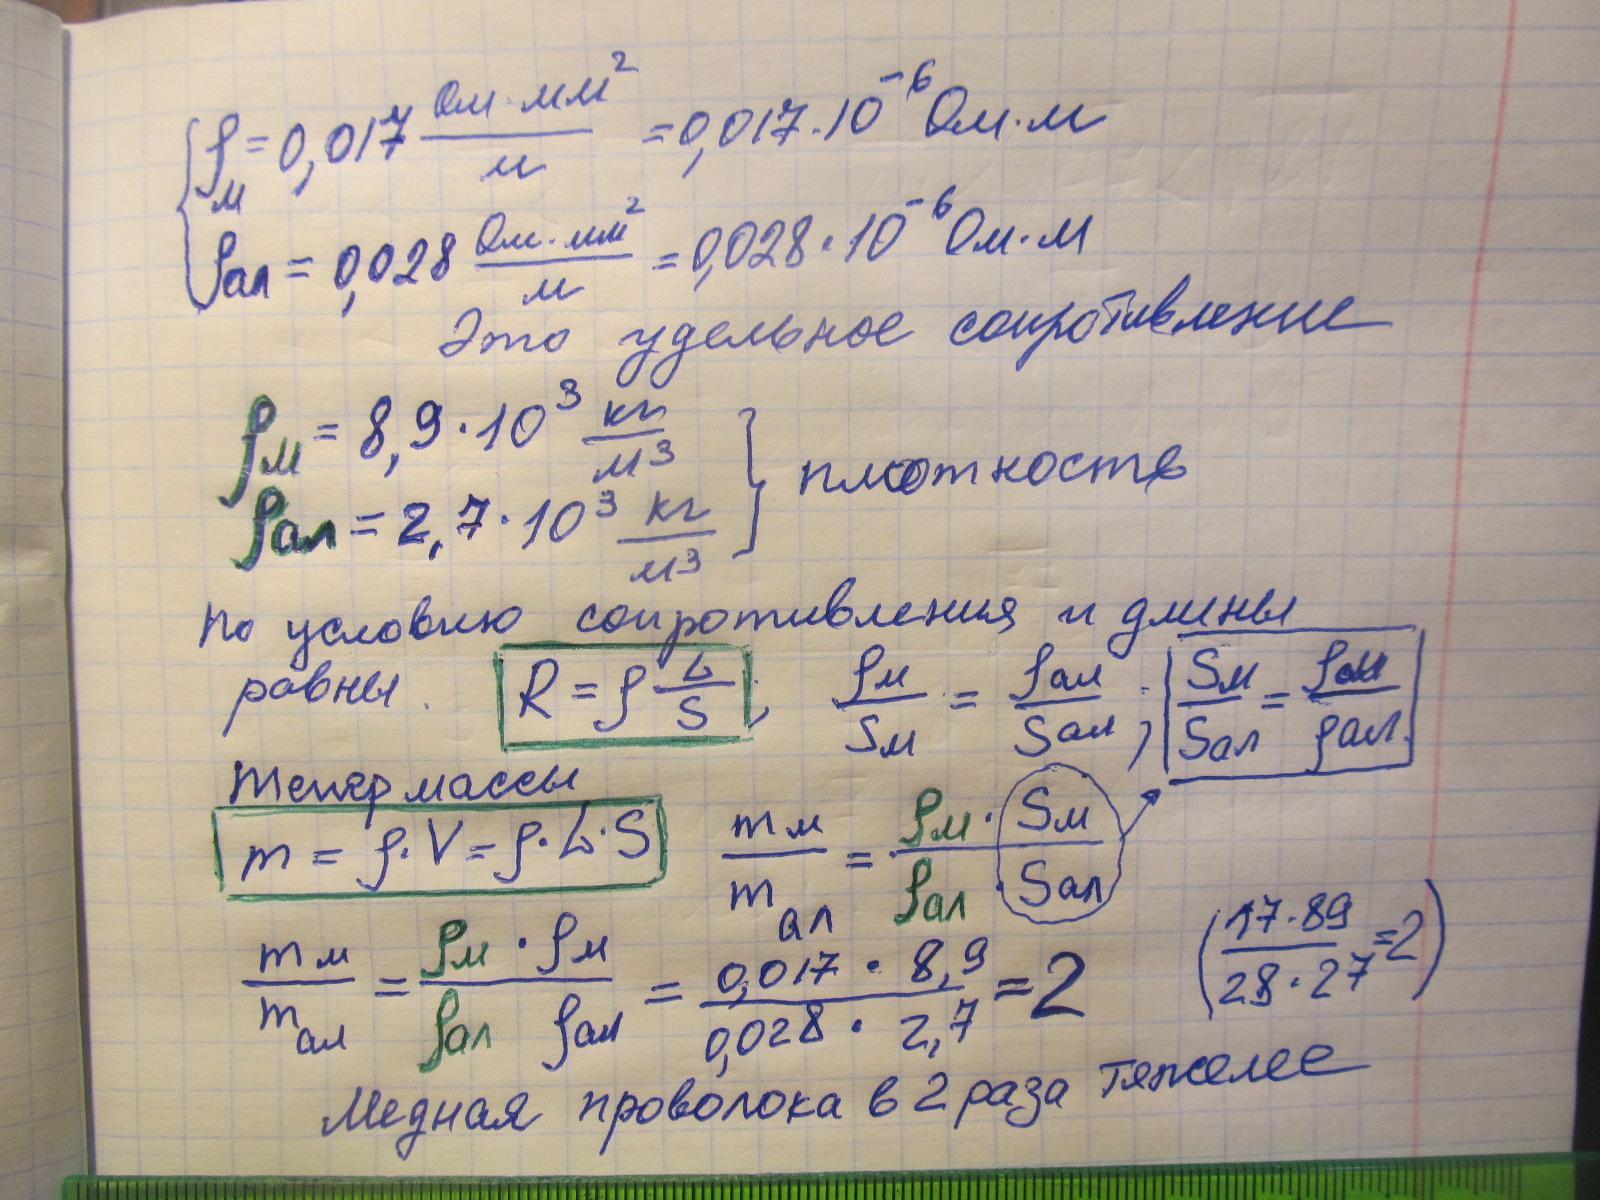 ρм = 0,017 Ом·мм²/м = 0,017·10⁻⁶ Ом·м
ρал = 0,028 Ом·мм²/м = 0,028·10⁻⁶ Ом·м
Это удельное сопротивление
ρм = 8,9·10³ кг/м³
ρал = 2,7·10³ кг/м³ } плотность
по условию сопротивления и длины
равны. R = ρ L/S ; ρм/Sм = ρал/Sал ; Sм/Sал = ρм/ρал.
Теперь массы
m = ρ·V = ρ·L·S mм/mал = ρм·Sм/ρал·Sал
mм/mал = ρм·ρм/ρал ρал = 0,017·8,9/0,028·2,7 = 2 (17·89/28·27 = 2)
Медная проволока в 2 раза тяжелее